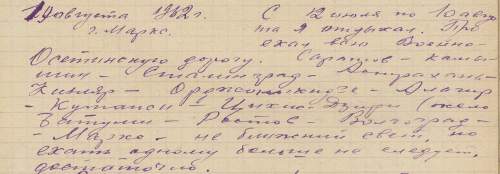 19 августа 1962 г. С 12 июля по 10 авгу
г. Маркс. ста я отдыхал. Про
ехал всю Военно-
Осетинскую дорогу. Саратов - Камы-
шин - Сталинград - Астрахань-
Кизляр - Орджоникидзе - Алагир
- Кутаиси - Цихис-Дзири (около
Батуми - Ростов - Волгоград -
- Маркс - не ближний свет, но
ехать одному больше не следует,
достаточно.